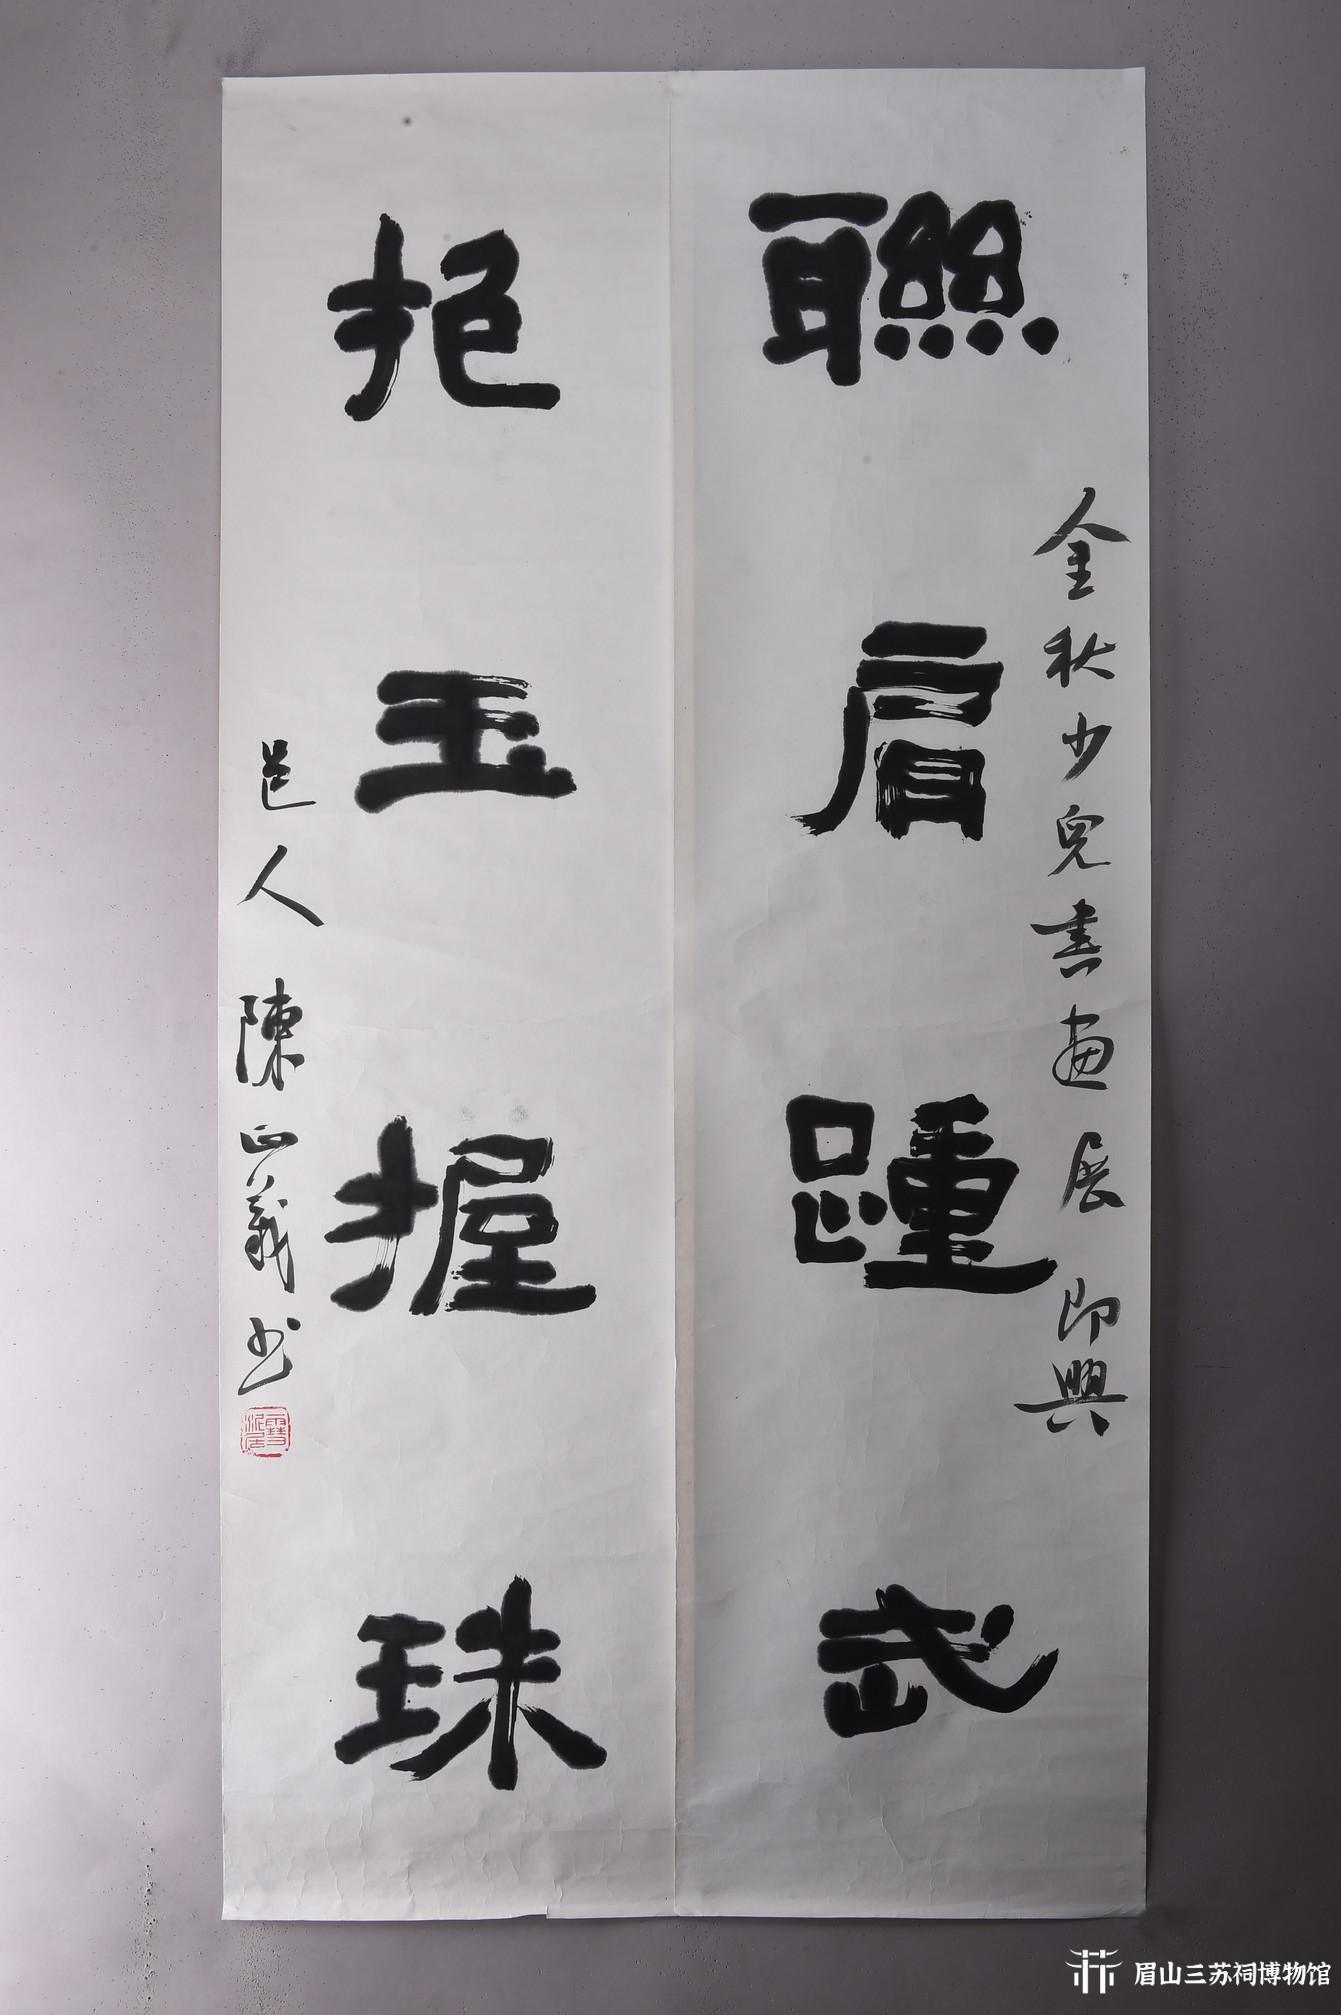 金秋少兒書畫展即興
聯肩踵武
抱玉握珠
邑人陳正義书
眉山三苏祠博物馆